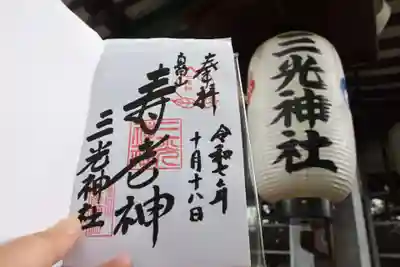 奉拝
眞田山
寿老神
三光神社
令和七年
十月十八日
三光神社